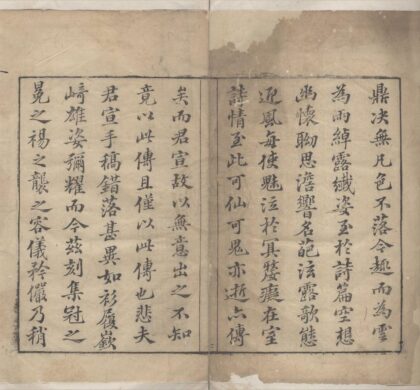 鼎決無凡色不落今趣而為雲
為雨綽露纖姿至於詩篇空想
幽懷聊思澹響名葩泫露歌態
迎風每使魅泣於冥嫠癡在室
誌情至此可仙可鬼亦逝亦傳
矣而君宣故以無意出之不知
竟以此傳且僅以此傳也悲夫
君宣手稿錯落甚異如衫履嶔
崎雄姿彌耀而今茲刻集冠之
冕之裼之襲之容儀矜儼乃稍